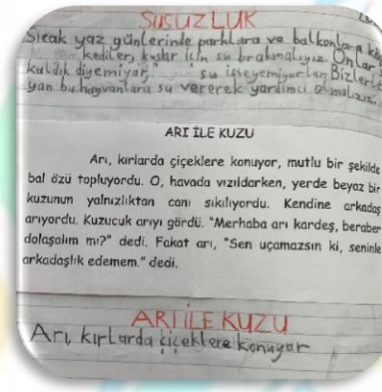 SUSUZLUK
Sıcak yaz günlerinde parklara ve balkonlara
kediler, kuşlar için su bırakmalıyız. Onlar
kaldık diyemiyor su isteyemiyorlar. Bizlerle
yan bu hayvanlara su vererek yardımcı olmalıyız.
ARI İLE KUZU
Arı, kırlarda çiçeklere konuyor, mutlu bir şekilde
bal özü topluyordu. O, havada vızıldarken, yerde beyaz bir
kuzunun yalnızlıktan canı sıkılıyordu. Kendine arkadaş
arıyordu. Kuzucuk arıyı gördü. "Merhaba arı kardeş, beraber
dolaşalım mı?" dedi. Fakat arı, "Sen uçamazsın ki, seninle
arkadaşlık edemem." dedi.
ARI İLE KUZU
Arı, kırlarda çiçeklere konuyor